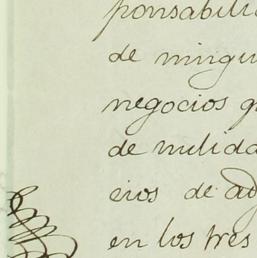 ponsabili
de ningu
negocios q
de nulida
eios de ad
en los tres